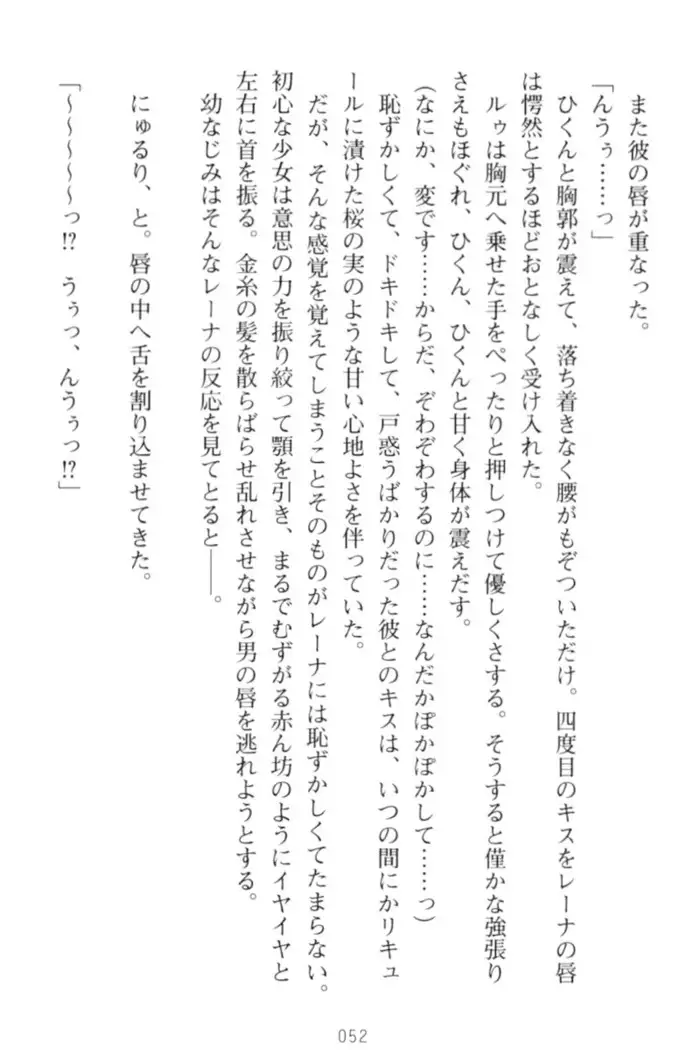 また彼の唇が重なった。
「んうぅ……っ」
ひくんと胸郭が震えて、落ち着きなく腰がもぞついただけ。四度目のキスをレーナの唇
は愕然とするほどおとなしく受け入れた。
ルゥは胸元へ乗せた手をぺったりと押しつけて優しくさする。そうすると僅かな強張り
さえもほぐれ、ひくん、ひくんと甘く身体が震えだす。
(なにか、変です……からだ、ぞわぞわするのに……なんだかぽかぽかして……っ)
恥ずかしくて、ドキドキして、戸惑うばかりだった彼とのキスは、いつの間にかリキュ
ールに漬けた桜の実のような甘い心地よさを伴っていた。
だが、そんな感覚を覚えてしまうことそのものがレーナには恥ずかしくてたまらない。
初心な少女は意思の力を振り絞って顎を引き、まるでむずがる赤ん坊のようにイヤイヤと
左右に首を振る。金糸の髪を散らばらせ乱れさせながら男の唇を逃れようとする。
幼なじみはそんなレーナの反応を見てとると――。
にゅるり、と。唇の中へ舌を割り込ませてきた。
「～～～～～っ!?　うぅっ、んうぅっ!?」
052